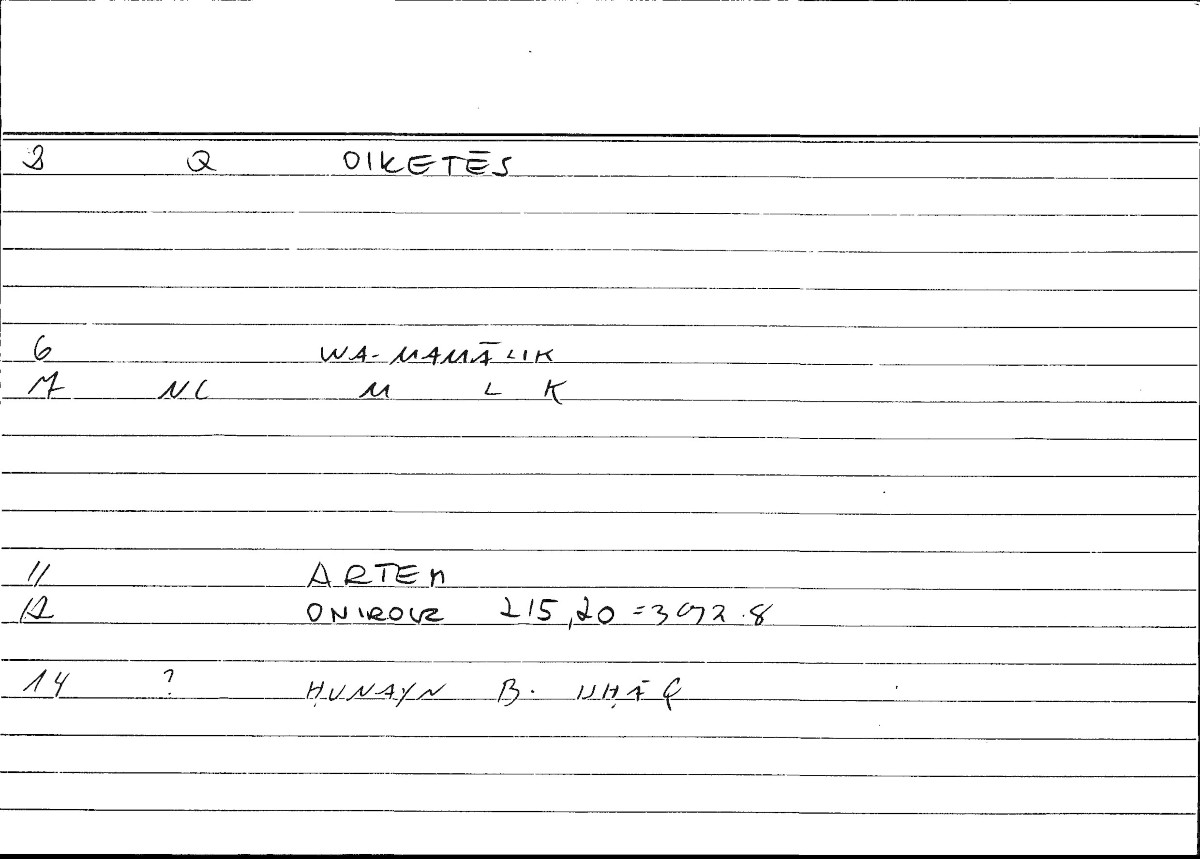 3 Q OIKETĒS
6 WA-MAMĀLIK
7 NC M L K
11 ARTEM
12 ONIROCR 215,20 = 392.8
14 ? ḤUNAYN B. ISḤĀQ